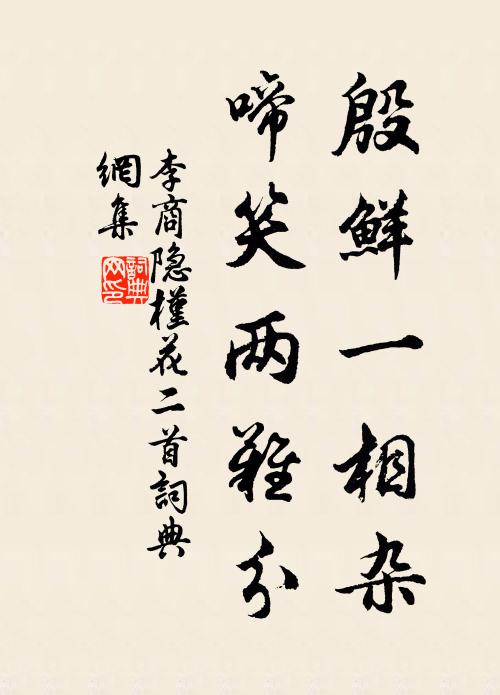 殷鮮一相杂
啼笑两難分
李商隐槿花二首詞典
網集
詞典网印